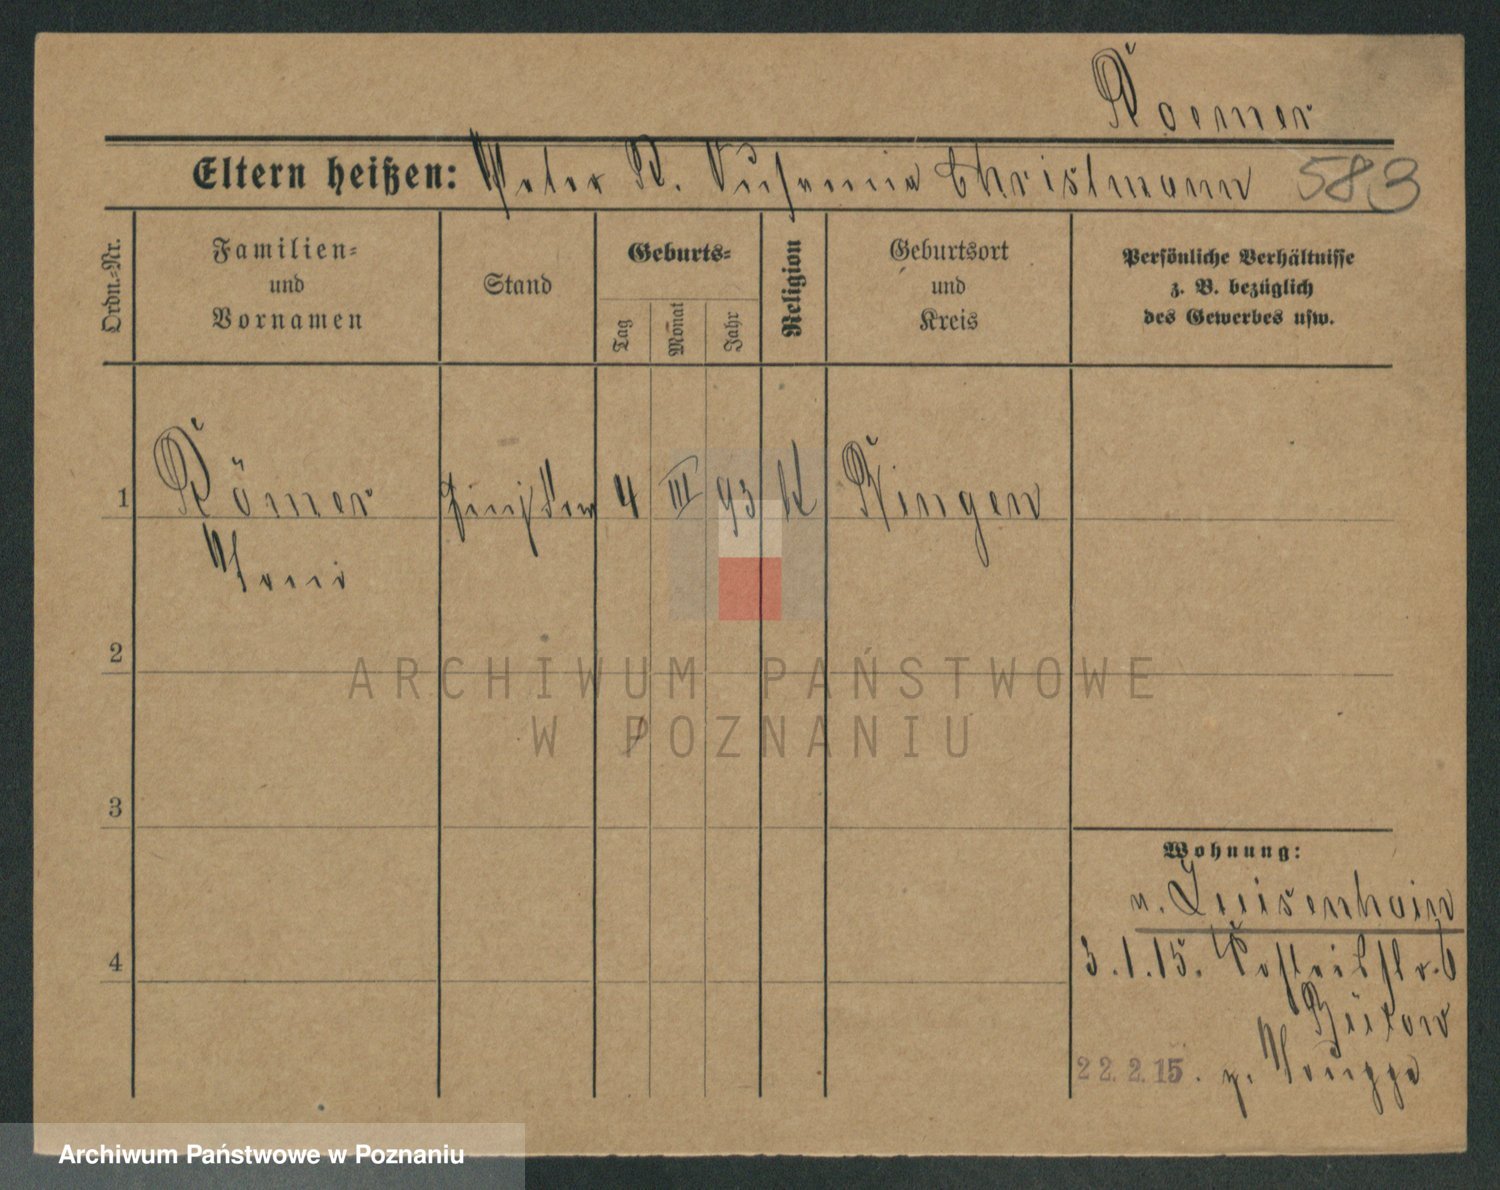 Roemer
Eltern heißen: Peter R. Susanna Christmann 583
Ordn.-Nr.
Familien- und Vornamen
Stand
Geburts-
Tag
Monat
Jahr
Religion
Geburtsort und Kreis
Persönliche Verhältnisse z. B. bezüglich des Gewerbes usw.
1 Römer 4 III 93 K Bingen
2
3
4
Wohnung:
n. Luisenhain
3.1.15.
Bülow
22.2.15.
ARCHIWUM PAŃSTWOWE
W POZNANIU
Archiwum Państwowe w Poznaniu